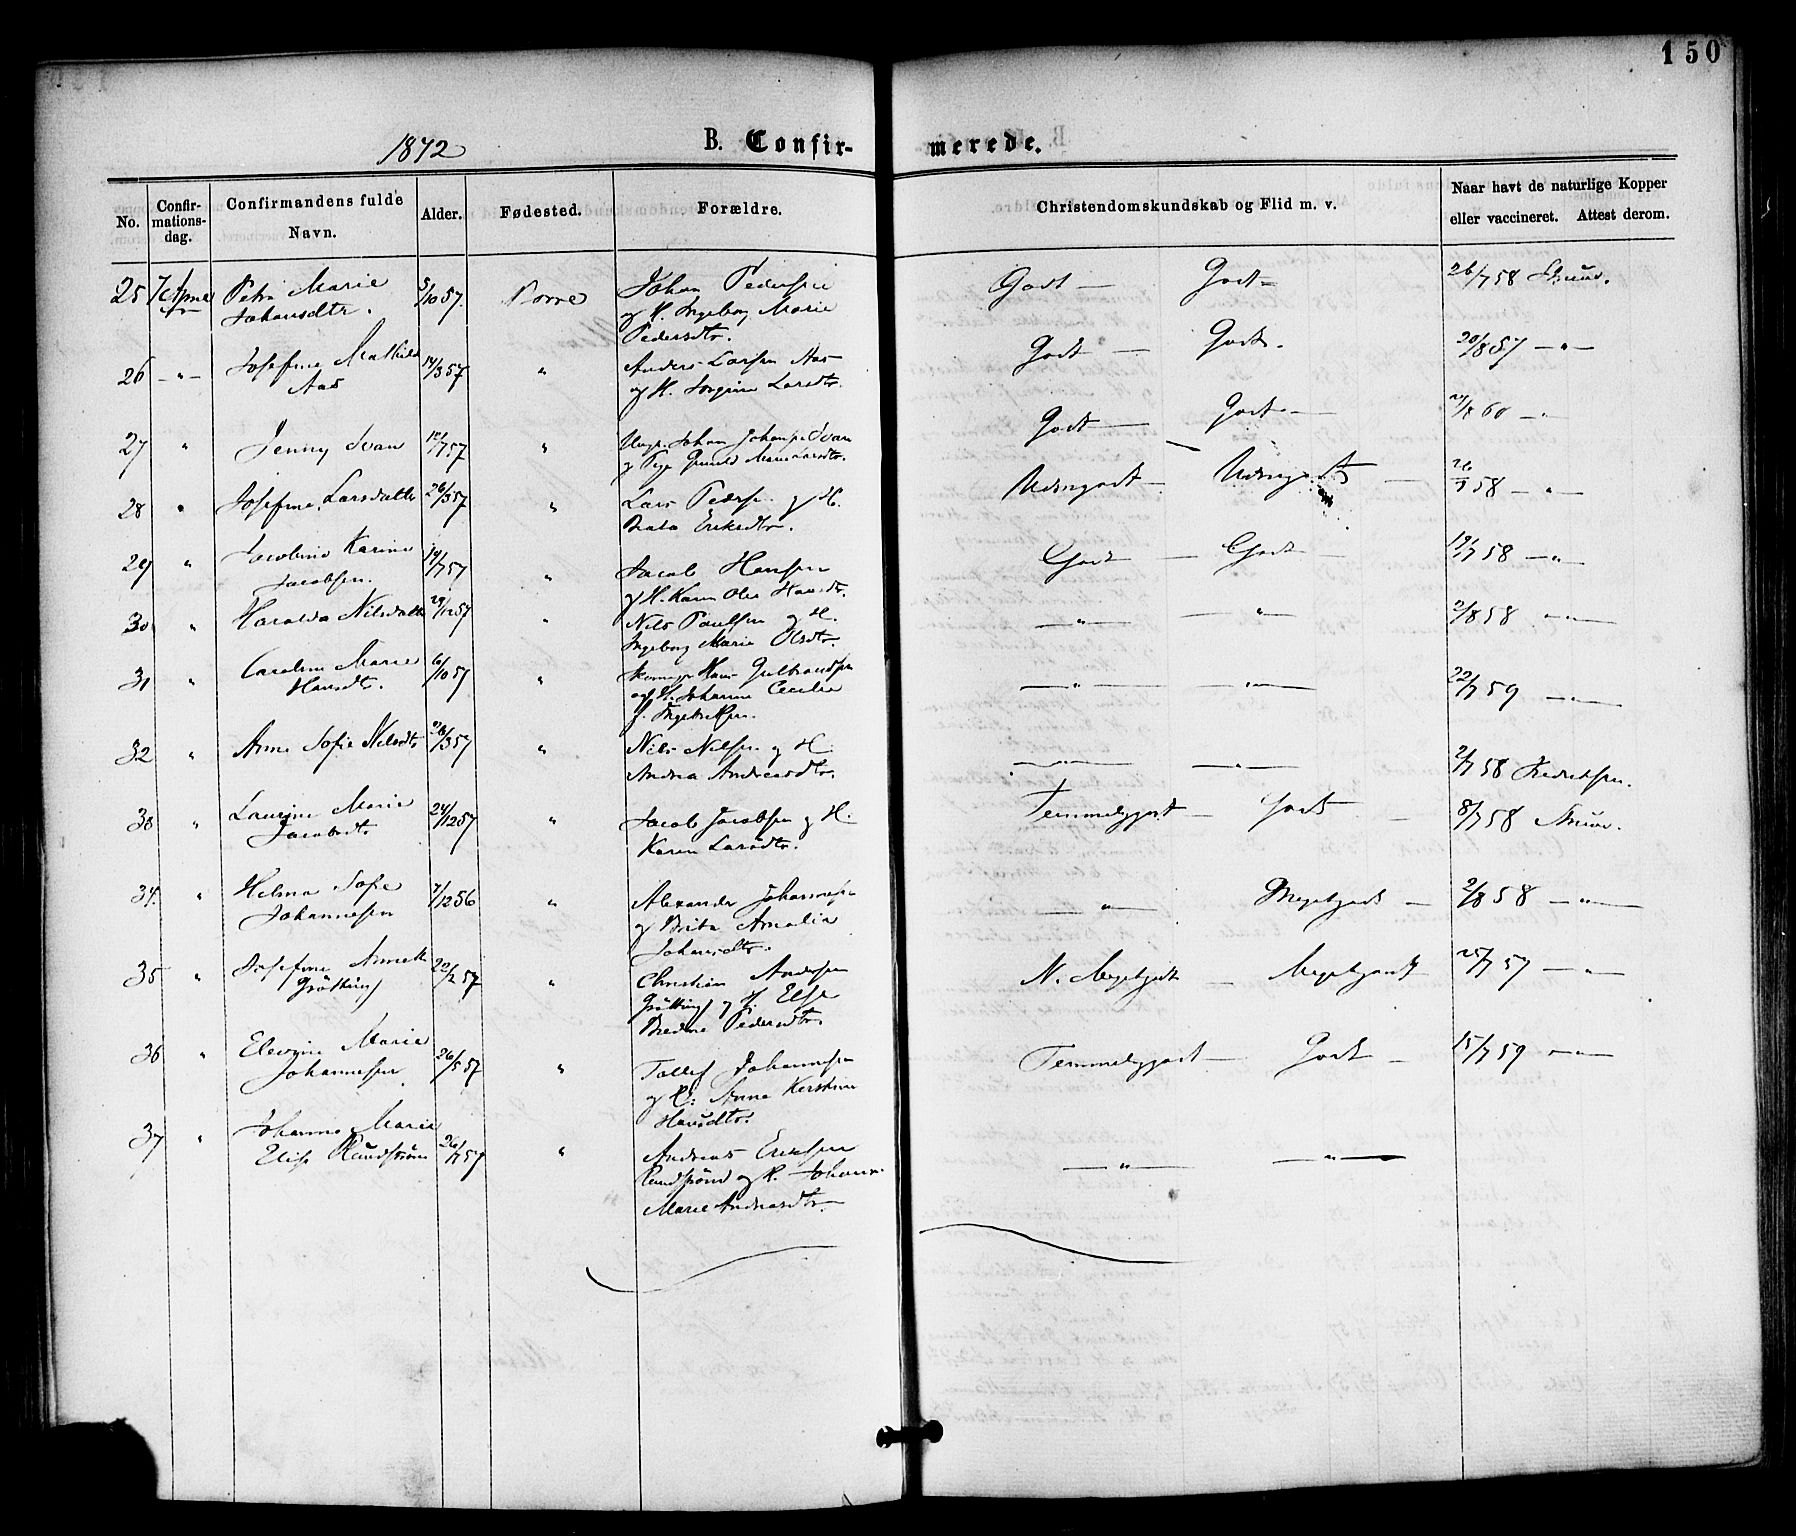 150
1872 B. Confir- merede.
No. Confir-mations-dag. Confirmandens fulde Navn. Alder. Fødested. Forældre. Christendomskundskab og Flid m. v. Naar havt de naturlige Kopper eller vaccineret. Attest derom.
25 7 Petra Marie 5/10 57. Johan Pedersen Godt — Godt — 26/7 58
Johansdtr. og H. Ingeborg Marie
Pedersdtr.
26 — " — Josefine Mathilde 14/3 57 " Anders Larsen Aas Godt — Godt. 20/8 57 — " —
Aas og H. Larsdtr.
27 " Jenny Svan 12/7 57 " Johan Svan Godt — Godt — /8 60 — " —
28 " Josefine Larsdatter 26/3 57 " Lars Peders. og H. Udmgodt — Udmgodt — 26/7 58 — " —
Beata Eriksdtr.
29 " Jacobine Karine 14/7 57 " Jacob Hansen Godt — Godt — 19/7 58 — " —
Jacobsen. og H. Karen Hansdtr.
30 " Haralda Nilsdatter 29/12 57 " Nils Paulsen og H. — " — — " — 2/8 58 — " —
Ingeborg Marie Olsdtr.
31 " Caroline Marie 6/10 57 " Hans Gulbrandsen — " — — " — 22/7 59 — " —
Hansdtr. og H. Johanne Cecilia
32 " Anne Sofie Nilsdtr /3 57 " Nils Nilsen og H. — " — — " — 2/7 58 Fredriksen.
Andrea Andreasdtr.
33 " Laurine Marie 24/12 57 " Jacob Jacobsen og H. Temmeliggodt — Godt — 8/7 58
Jacobsdtr Karen Larsdtr.
34. " Helma Sofie 7/12 56 " Alexander Johannesen — " — Megetgodt — 2/8 58 — " —
Johannesen og Brita Amalia
Johansdtr.
35 " Josefine Annette 22/2 57 " Christian Andersen N. Megetgodt — Megetgodt 25/7 57 — " —
Grötting Grötting og H. Else
Pedersdtr.
36 " Elevine Marie 26/5 57 " Tollef Johannesen Temmeliggodt — Godt — 15/7 59 — " —
Johannesen og H: Anne Kerstine
Hansdtr.
37 " Johanne Marie 26/7 57 " Andreas Eriksen — " — — " —
Elise Rundström Rundström og H. Johanne
Marie Andreasdtr.